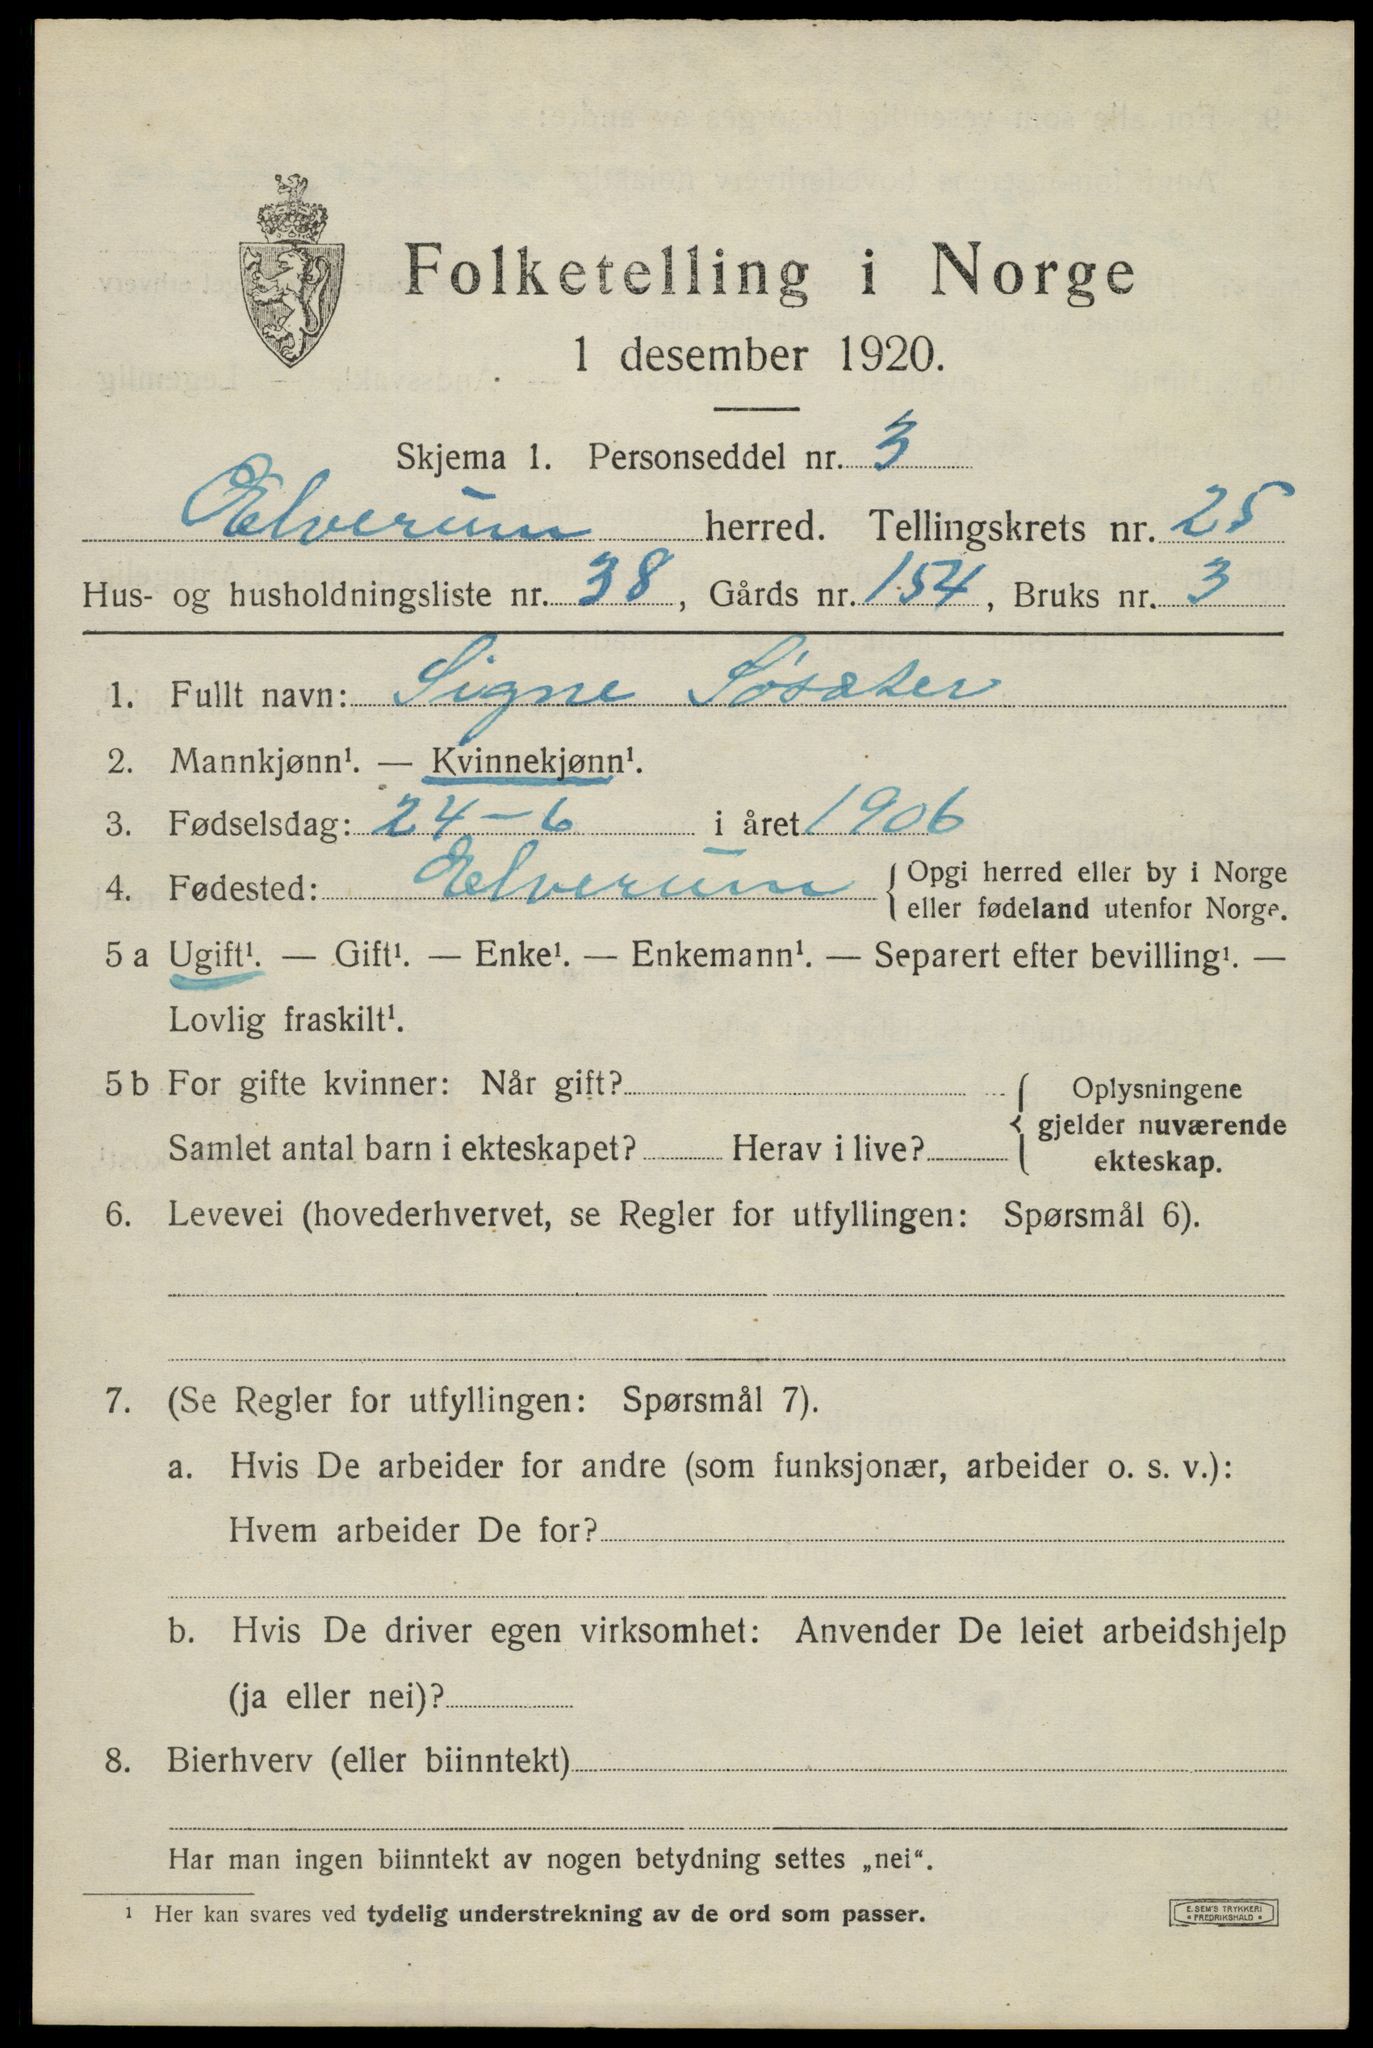 Folketelling i Norge
1 desember 1920.
Skjema 1. Personseddel nr. 3
Elverum herred. Tellingskrets nr. 25
Hus- og husholdningsliste nr. 38, Gårds nr. 154, Bruks nr. 3
1. Fullt navn: Signe Søsæter
2. Mannkjønn¹. — Kvinnekjønn¹.
3. Fødselsdag: 24-6 i året 1906
4. Fødested: Elverum { Opgi herred eller by i Norge
eller fødeland utenfor Norge.
5 a Ugift¹. — Gift¹. — Enke¹. — Enkemann¹. — Separert efter bevilling¹. —
Lovlig fraskilt¹.
5 b For gifte kvinner: Når gift? { Oplysningene
gjelder nuværende
Samlet antal barn i ekteskapet? Herav i live? ekteskap.
6. Levevei (hovederhvervet, se Regler for utfyllingen: Spørsmål 6).
7. (Se Regler for utfyllingen: Spørsmål 7).
a. Hvis De arbeider for andre (som funksjonær, arbeider o. s. v.):
Hvem arbeider De for?
b. Hvis De driver egen virksomhet: Anvender De leiet arbeidshjelp
(ja eller nei)?
8. Bierhverv (eller biinntekt)
Har man ingen biinntekt av nogen betydning settes „nei“.
¹ Her kan svares ved tydelig understrekning av de ord som passer.
E. SEM'S TRYKKERI
• FREDRIKSHALD •